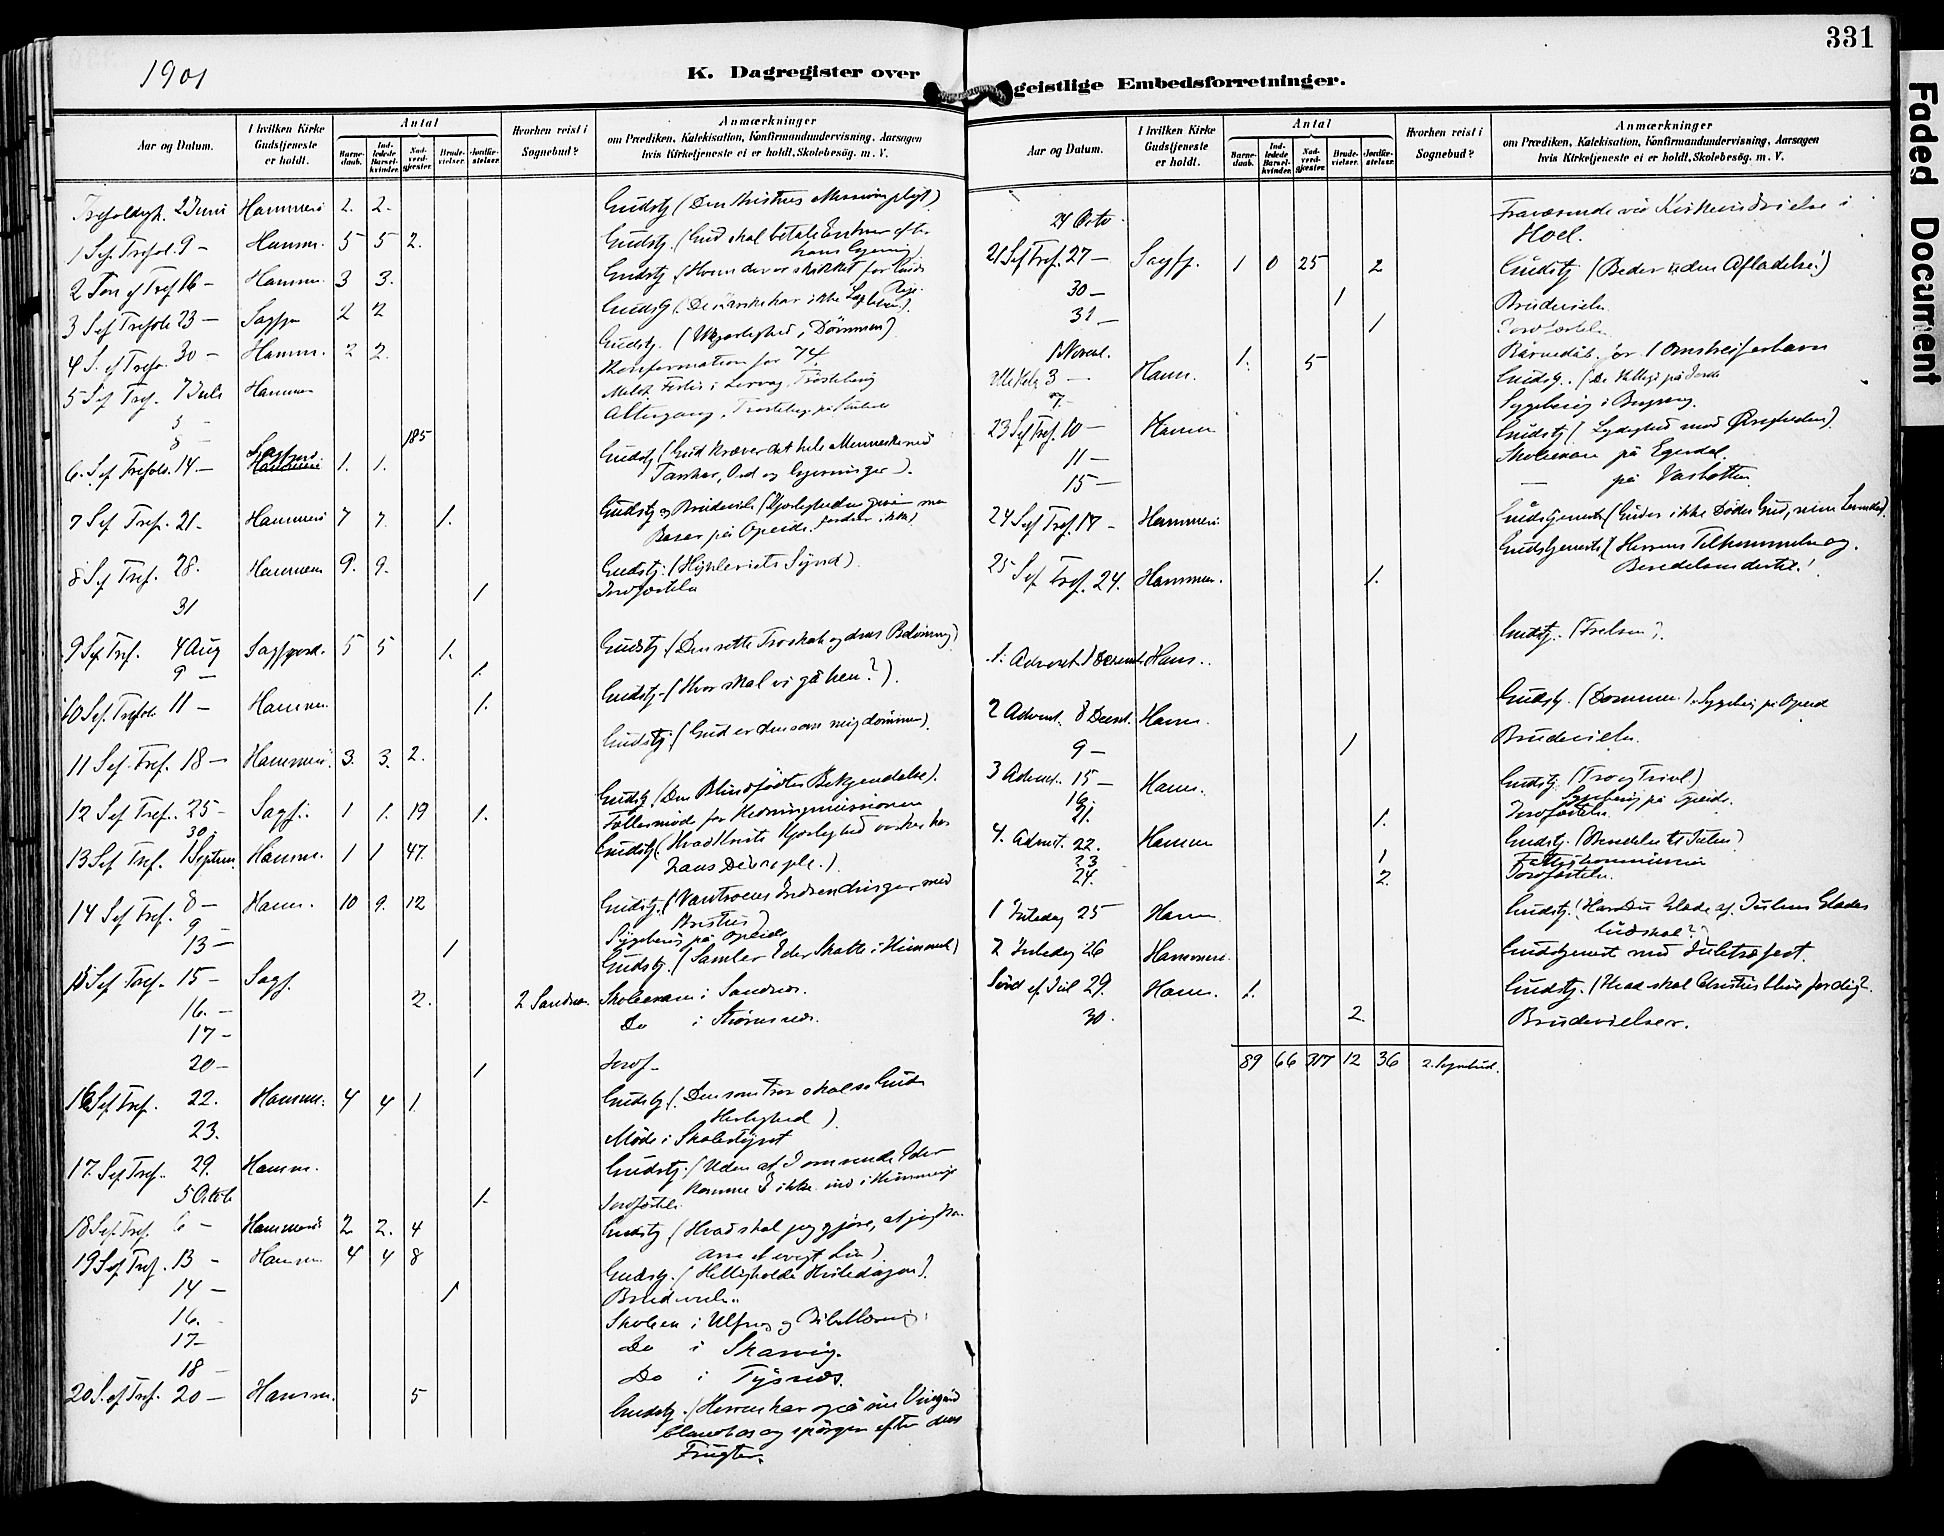 331
1901
K. Dagregister over geistlige Embedsforretninger.
Aar og Datum.
I hvilken Kirke Gudstjeneste er holdt.
Antal
Barnedaab.
Indledede Barselkvinder.
Nadverdgjester.
Brudevielser.
Jordfæstelser.
Hvorhen reist i Sognebud?
Anmærkninger
om Prædiken, Katekisation, Konfirmandundervisning, Aarsagen
hvis Kirketjeneste ei er holdt, Skolebesøg. m. V.
2 Juni Hammerö 2. 2. Gudstj (Den Kristnes Missionspligt)
1 Sef. Trefol. 9 – Hamm. 5 5 2. Gudstj. (Gud skal betale Enhver efter
hans Gjerning)
2 Søn ef Tref 16 – Hamm. 3 3. Gudstj (Hvem der er skikket for Guds
Rige.
3 Sef Trefole 23 – Sagfj 2 2 Gudstj (De særske har ikke Lægebehov).
4 S. ef Tref. 30 – Hamm. 2 2. Gudstj. ( i Dømmen)
5 Sef Tref. 7 Juli Hammer Konfirmation for 74
5 –
8 – 185 Altergang.
6. Sef Trefole. 14 – Sagfjord 1. 1. Gudstj (Gud kræver det hele Menneske med
Tanker, Ord og Gjerninger).
7 Sef Tref. 21 – Hammerö 7 7. 1. Gudstj og Brudeviels (Kjærligheden giver men
på Opeide. fordrer ikke)
8 Sef Tref. 28. Hammerö 9. 9. Gudstj. (Hykleriets Synd).
31 1 Jordfæstelse
9 Sef Tref. 4 Aug Sagfjord. 5 5 1. Gudstj. (Den rette Troskab og dens Belønning)
9 – 1.
10 Sef. Trefole 11 – Hammer. 1. Gudstj. (Hvor skal vi gå hen?).
11 Sef. Tref. 18 – Hammerö. 3. 3. 2. Gudstj. (Gud er den som mig dømmer).
12 Sef Tref. 25 – Sagfj. 1 1. 19 1. Gudstj. (Den Blindfødtes Bekjendelse).
30. Fællesmøde for Hedningmissionen
13 Sef Tref. 1 Septem. Hamme. 1 1 47. Gudstj. (Hvad Kristi Kjærlighed virker hos
hans Disciple.)
14 Sef Tref. 8 – Hamm. 10 9. 12 Gudstj. (Vantroens Indvendinger med
Kristus)
9 – Sygebesøg på Opeide
13 – 1
15 Sef Tref. 15 – Sagf. Gudstj. (Samler Eder Skatte i Himmel)
16. – 2. 2 Sandnæs. Skoleexam i Sandnæs.
17 – Do i Strømsnæs.
20 – 1 Jordf –
16 Sef Tref. 22. Hamm. 4 4 1. Gudstj (Den som Tror skal se Guds
Herlighed).
23. Møde i Skolestyret
17. Sef Tref. 29. Hamm. Gudstj. (Uden at I omvende Eder
komme I ikke ind i Himmerige
5 Octob 1. Jordfæstel.
18 Sef. Tref. 6 – Hammerö 2 2. 4 Gudstj (Hvad skal jeg gjøre, at jeg kan
arve et evigt Liv)
19 Sef Tref. 13 – Hamm 4 4 8 Gudstj. (Helligholde Hviledagen).
14 – 1 Brudeviels.
16. – Skolen i Ulfsvg og Bibellæsning.
17 – Do i Skarvig.
18 – Do i Tysnæs.
20 S. ef Tref. 20 – Hamm. 5 Gudstj. (Herren har også sin Vingård
iblandt os og spørger efter dens
Frugter.
Aar og Datum.
I hvilken Kirke Gudstjeneste er holdt.
Antal
Barnedaab.
Indledede Barselkvinder.
Nadverdgjester.
Brudevielser.
Jordfæstelser.
Hvorhen reist i Sognebud?
Anmærkninger
om Prædiken, Katekisation, Konfirmandundervisning, Aarsagen
hvis Kirketjeneste ei er holdt, Skolebesøg. m. V.
24 Octo – Fraværende ved Kirkeindvielse i
Hoel.
21 Sef Tref. 27 – Sagfj. 1 0 25 2 Gudstj (Beder uden Afladelse!)
30 – 1 Brudeviels.
31 – 1 Jordfæstels.
1 Novemb. 1. 5 Barnedåb. for 1 Omstreiferbarn
Allehelg 3 – Hamm. Gudstj. (De Hellige på Jorde
7. – Sygebesøg i
23 Sef Tref. 10 – Hamm Gudstj (Lydighed mod Øvrigheden)
11 – Skoleexam på Egerdal.
15 – – på Vasbotten
24 Sef Tref. 17 – Hammerö. Gudstjeneste (Gud er ikke Dødes Gud, men Levendes).
25 Sef. Tref. 24. Hammer. 1. Gudstjeneste (Herrens Tilkommelse og
Beredelsen dertil!
1. Advent. 1 Decemb. Ham.. Gudstj. (Frelsen).
2 Advent. 8 Decemb. Hamm. Gudstj. (Dommen). Sygebesøg på Opeid
9 – 1 Brudeviels.
3 Advent. 15 – Hamm. Gudstj. (Tro og Tvivl.)
16. Sygebesøg på Opeide.
21. 1. Jordfæstels.
4. Advent. 22. Hamm Gudstj. (Beredelse til Julen)
23 1 Fattigkommission
24. 2. Jordfæstels.
1 Juledag 25 Hamm Gudstj. (Har Du Glæde af Julens Glædes
Budskab?)
2 Juledag 26 Hammerö. Gudstjenest med Juletræfest.
Sønd ef Jul 29. Hamm. 1. Gudstj. (Hvad skal Christus blive for dig?.
30. 2. Brudevielser.
89 66 317 12 36 2. Sognbud.
Faded Document